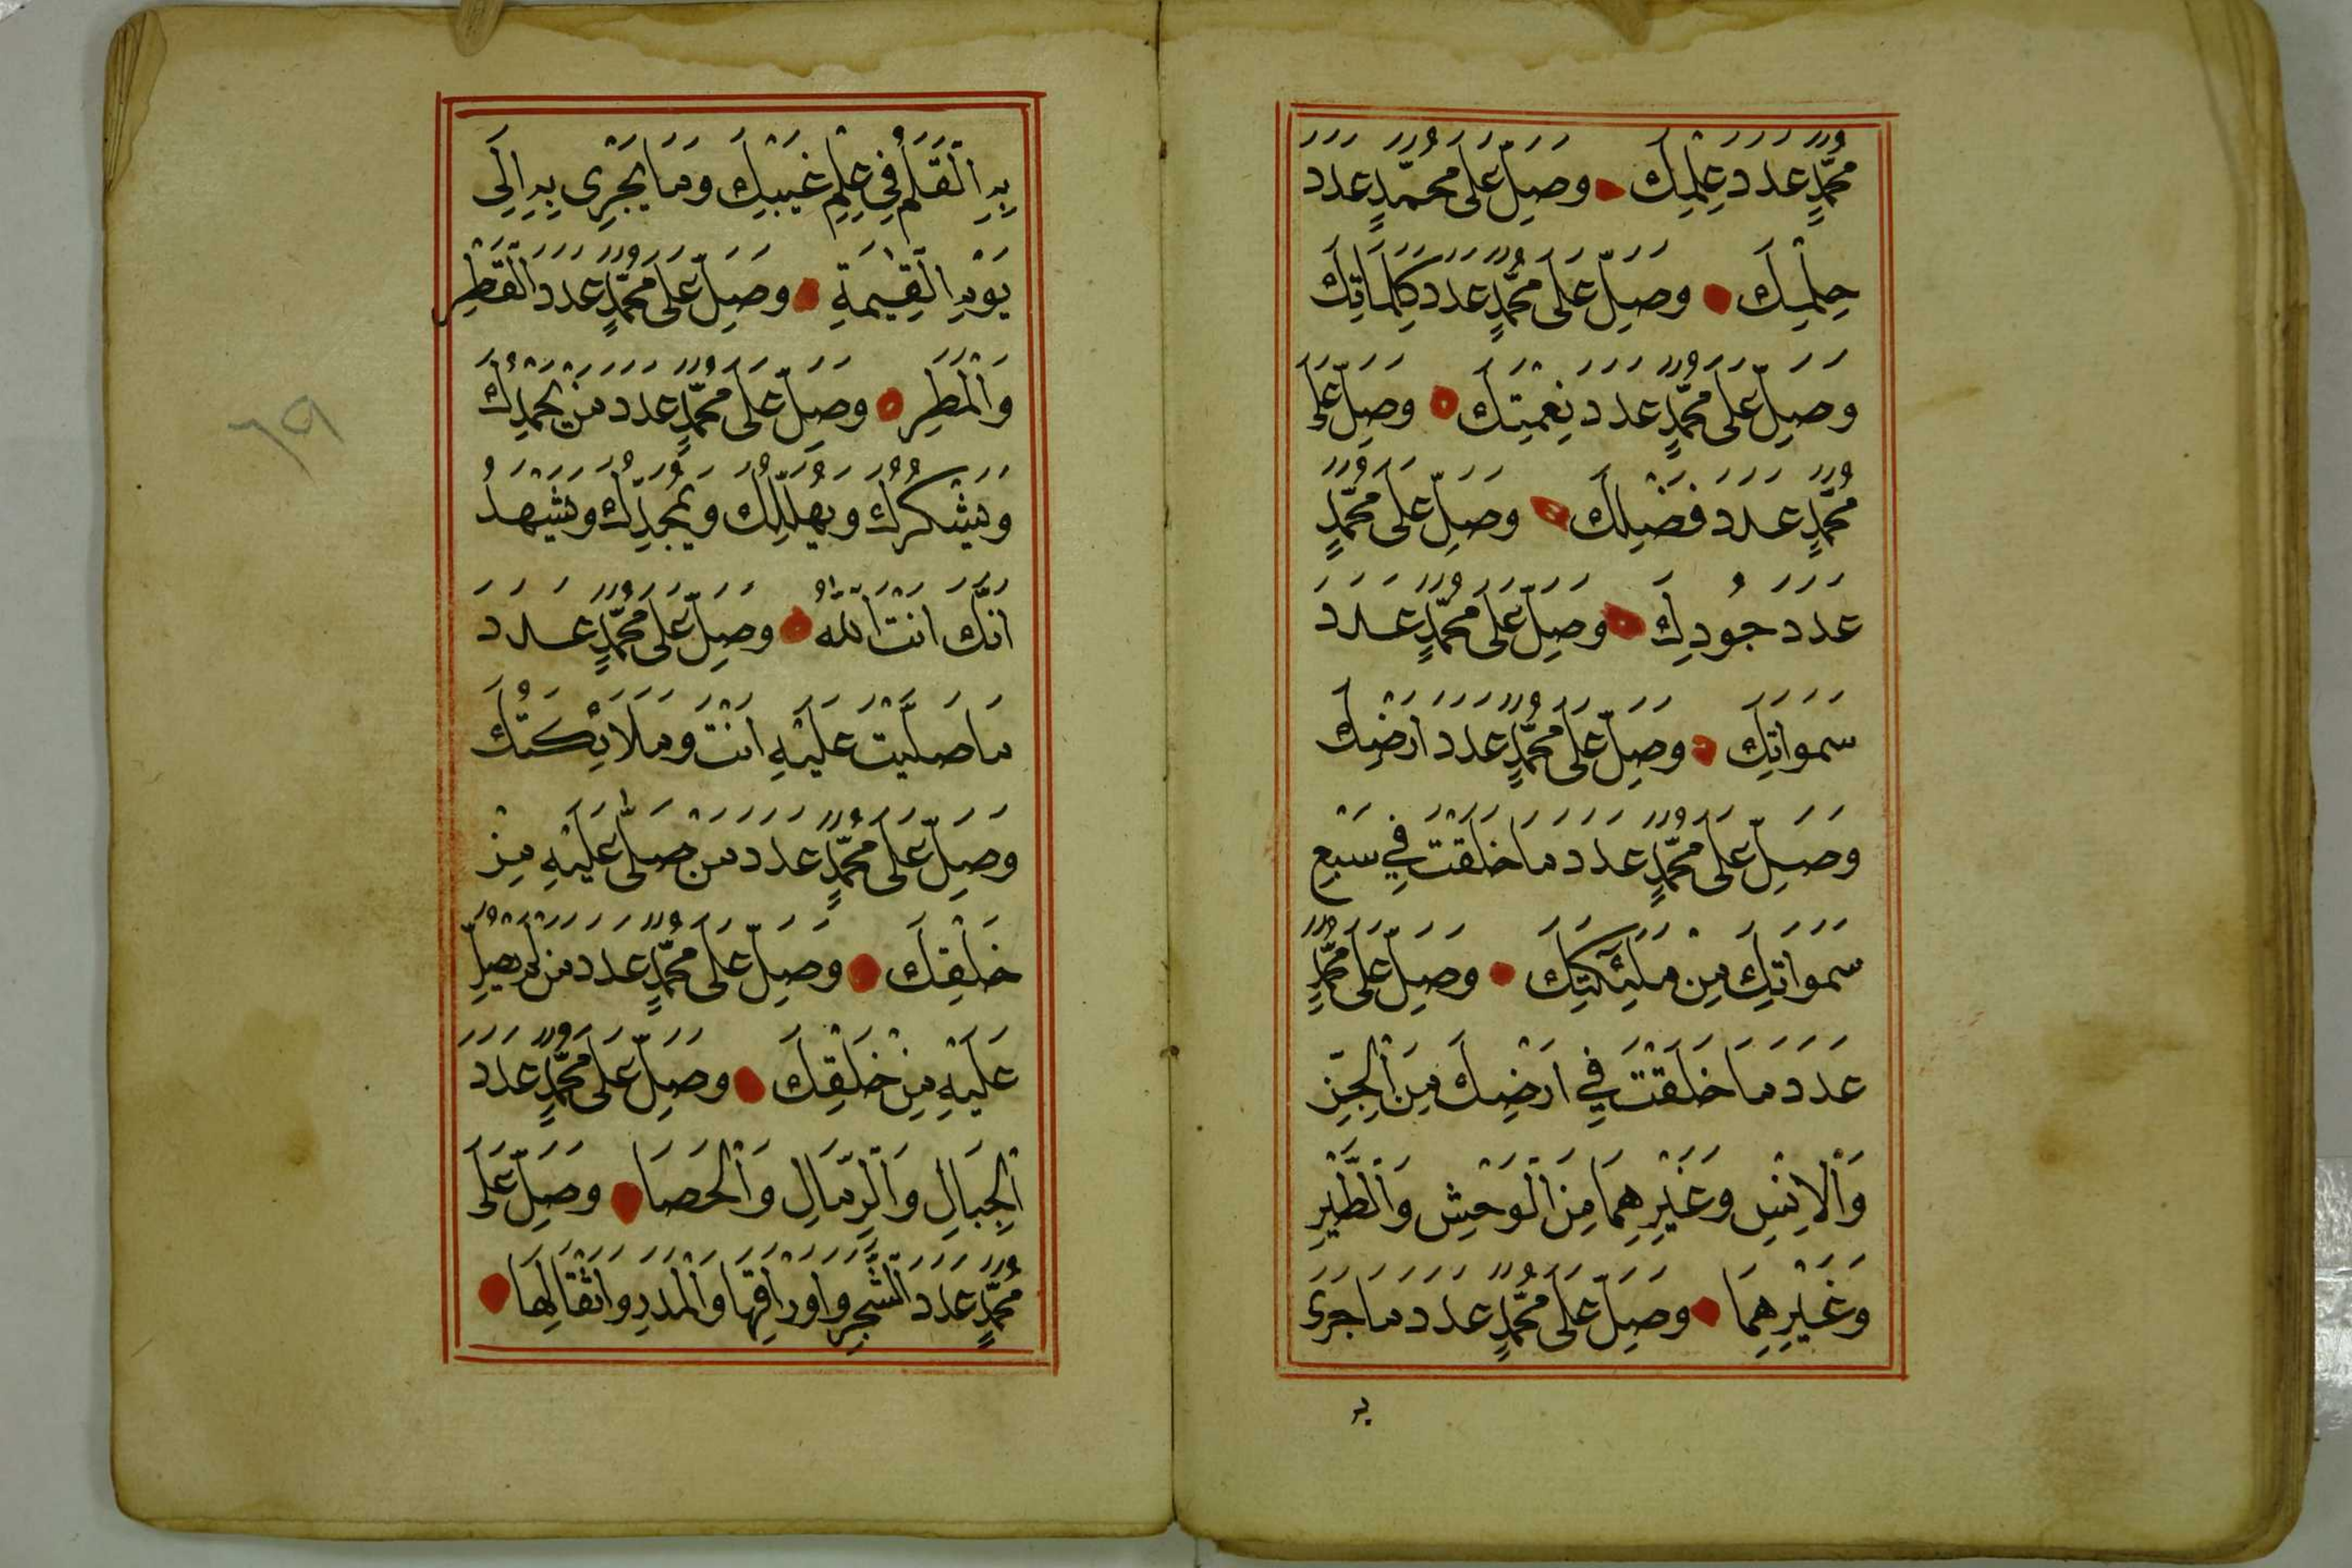 مُحَمَّدٍ عَدَدَ عِلْمِكَ وَصَلِّ عَلَى مُحَمَّدٍ عَدَدَ
حِلْمِكَ وَصَلِّ عَلَى مُحَمَّدٍ عَدَدَ كَلِمَاتِكَ
وَصَلِّ عَلَى مُحَمَّدٍ عَدَدَ نِعْمَتِكَ وَصَلِّ عَلَى
مُحَمَّدٍ عَدَدَ فَضْلِكَ وَصَلِّ عَلَى مُحَمَّدٍ
عَدَدَ جُودِكَ وَصَلِّ عَلَى مُحَمَّدٍ عَدَدَ
سَمَوَاتِكَ وَصَلِّ عَلَى مُحَمَّدٍ عَدَدَ اَرْضِكَ
وَصَلِّ عَلَى مُحَمَّدٍ عَدَدَ مَا خَلَقْتَ فِي سَبْعِ
سَمَوَاتِكَ مِنْ مَلٰئِكَتِكَ وَصَلِّ عَلَى مُحَمَّدٍ
عَدَدَ مَا خَلَقْتَ فِي اَرْضِكَ مِنَ الْجِنِّ
وَالْاِنْسِ وَغَيْرِهِمَا مِنَ الْوَحْشِ وَالطَّيْرِ
وَغَيْرِهِمَا وَصَلِّ عَلَى مُحَمَّدٍ عَدَدَ مَا جَرَى
بِهِ
بِهِ الْقَلَمُ فِي عِلْمِ غَيْبِكَ وَمَا يَجْرِي بِهِ اِلَى
يَوْمِ الْقِيٰمَةِ وَصَلِّ عَلَى مُحَمَّدٍ عَدَدَ الْقَطْرِ
وَالْمَطَرِ وَصَلِّ عَلَى مُحَمَّدٍ عَدَدَ مَنْ يَحْمَدُكَ
وَيَشْكُرُكَ وَيُهَلِّلُكَ وَيُمَجِّدُكَ وَيَشْهَدُ
اَنَّكَ اَنْتَ اللّٰهُ وَصَلِّ عَلَى مُحَمَّدٍ عَدَدَ
مَا صَلَّيْتَ عَلَيْهِ اَنْتَ وَمَلَائِكَتُكَ
وَصَلِّ عَلَى مُحَمَّدٍ عَدَدَ مَنْ صَلَّى عَلَيْهِ مِنْ
خَلْقِكَ وَصَلِّ عَلَى مُحَمَّدٍ عَدَدَ مَنْ لَمْ يُصَلِّ
عَلَيْهِ مِنْ خَلْقِكَ وَصَلِّ عَلَى مُحَمَّدٍ عَدَدَ
الْجِبَالِ وَالرِّمَالِ وَالْحَصَا وَصَلِّ عَلَى
مُحَمَّدٍ عَدَدَ الشَّجَرِ وَاَوْرَاقِهَا وَالْمَدَرِ وَاَثْقَالِهَا